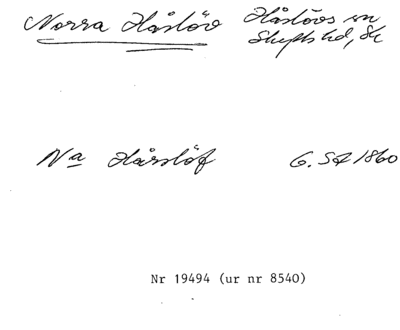 Norra Håslöv Håslövs sn
Skytts hd, Sk
Na Hårslöf G. SA 1860
Nr 19494 (ur nr 8540)